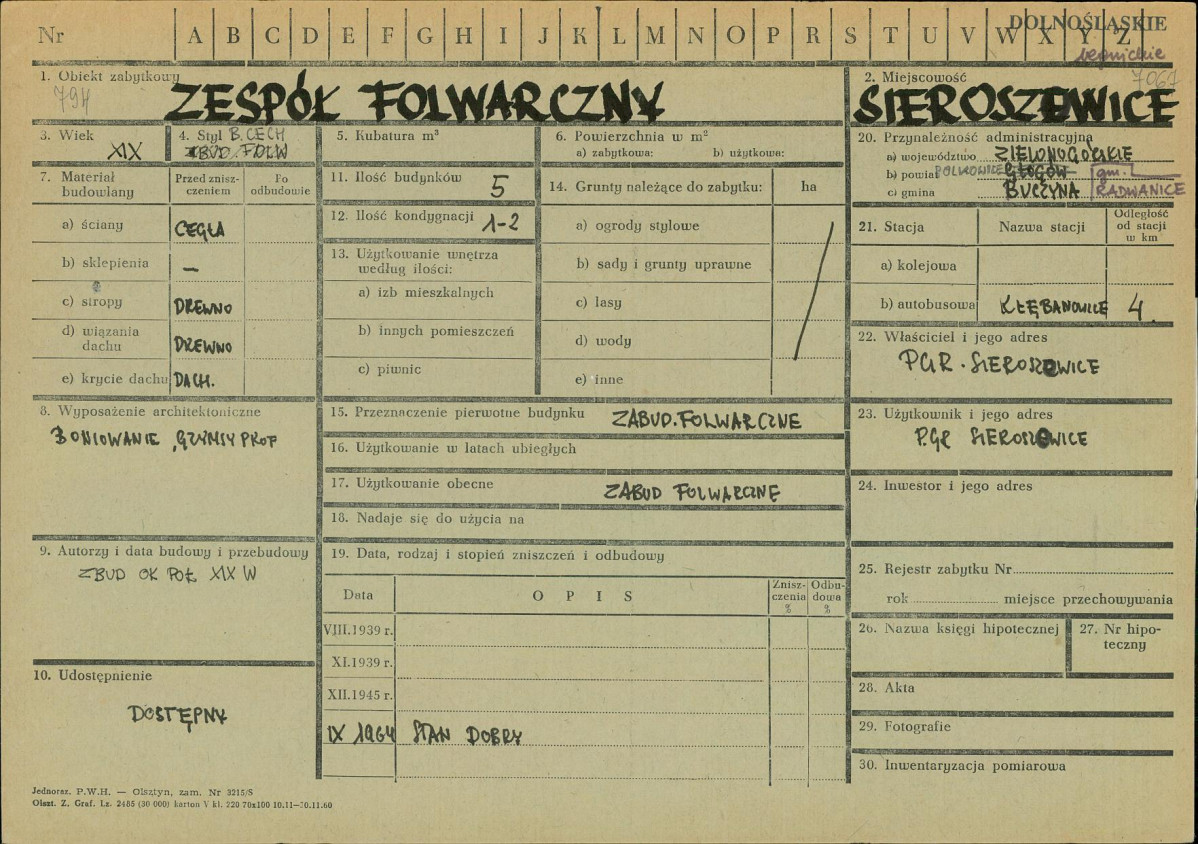 Nr A B C D E F G H I J K L M N O P R S T U V W X Y Z
DOLNOŚLĄSKIE
legnickie
7061
1. Obiekt zabytkowy
794
ZESPÓŁ FOLWARCZNY
2. Miejscowość
SIEROSZEWICE
3. Wiek
XIX
4. Styl B. CECH
ZBUD. FOLW
5. Kubatura m³
6. Powierzchnia w m²
a) zabytkowa: b) użytkowa:
20. Przynależność administracyjna
a) województwo ZIELONOGÓRSKIE
b) powiat POLKOWICE GŁOGÓW
c) gmina BUCZYNA gm. RADWANICE
7. Materiał budowlany
Przed zniszczeniem
Po odbudowie
a) ściany CEGŁA
b) sklepienia —
c) stropy DREWNO
d) wiązania dachu DREWNO
e) krycie dachu DACH.
11. Ilość budynków 5
12. Ilość kondygnacji 1-2
13. Użytkowanie wnętrza
według ilości:
a) izb mieszkalnych
b) innych pomieszczeń
c) piwnic
14. Grunty należące do zabytku: ha
a) ogrody stylowe
b) sady i grunty uprawne
c) lasy
d) wody
e) inne
21. Stacja Nazwa stacji Odległość od stacji w km
a) kolejowa
b) autobusowa KŁĘBANOWICE 4.
22. Właściciel i jego adres
PGR. SIEROSZOWICE
8. Wyposażenie architektoniczne
BONIOWANIE, GZYMSY PROF
15. Przeznaczenie pierwotne budynku ZABUD. FOLWARCZNE
16. Użytkowanie w latach ubiegłych
17. Użytkowanie obecne ZABUD FOLWARCZNE
18. Nadaje się do użycia na
23. Użytkownik i jego adres
PGR SIEROSZOWICE
24. Inwestor i jego adres
9. Autorzy i data budowy i przebudowy
ZBUD OK POŁ. XIX W
19. Data, rodzaj i stopień zniszczeń i odbudowy
Data OPIS Zniszczenia % Odbudowa %
VIII.1939 r.
XI.1939 r.
XII.1945 r.
IX 1964 STAN DOBRY
25. Rejestr zabytku Nr
rok miejsce przechowywania
26. Nazwa księgi hipotecznej
27. Nr hipoteczny
10. Udostępnienie
DOSTĘPNY
28. Akta
29. Fotografie
30. Inwentaryzacja pomiarowa
Jednoraz. P.W.H. — Olsztyn, zam. Nr 3215/S
Olszt. Z. Graf. Lz. 2485 (30 000) karton V kl. 220 70x100 10.11—30.11.60